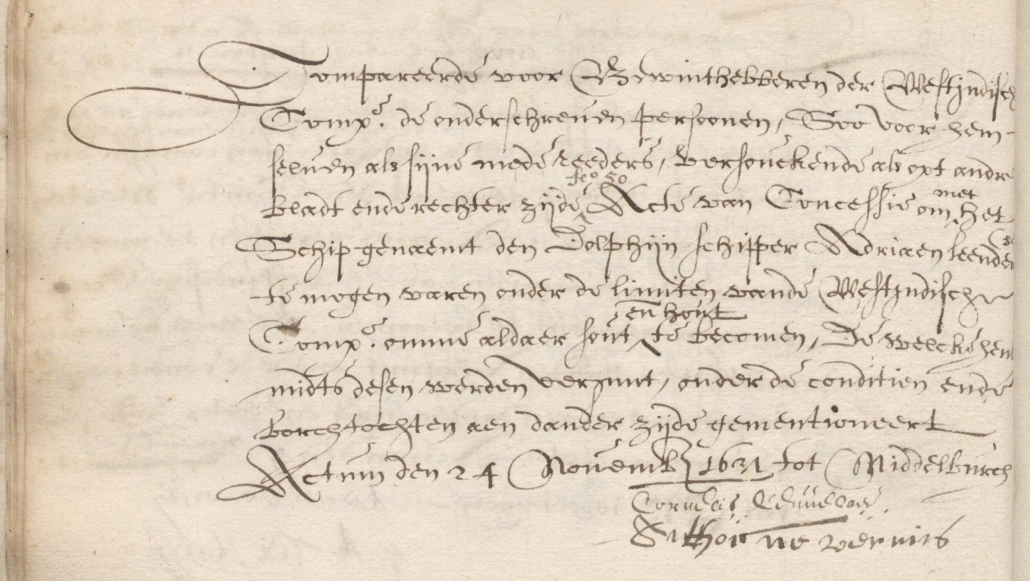 Compareerde voor Bewinthebberen der Westindisch
Compe. de onderschreven persoonen, Soo voor hem
selven als sijne mede reeders, versouckende als opt andre
fto 50
bladt ende rechter zijde, Acte van Concessie om met het
Schip genaemt den Dolphijn schipper Adriaen leende
te mogen varen onder de limiten vande Westindische
en hout
Compe. omme aldaer sout te becomen, De welcke hem
midts desen werden verjunt, onder de conditien ende
borchtochten aen dander zijde gementioneert
Actum den 24 Novemb 1631 tot Middelburch
Cornelis